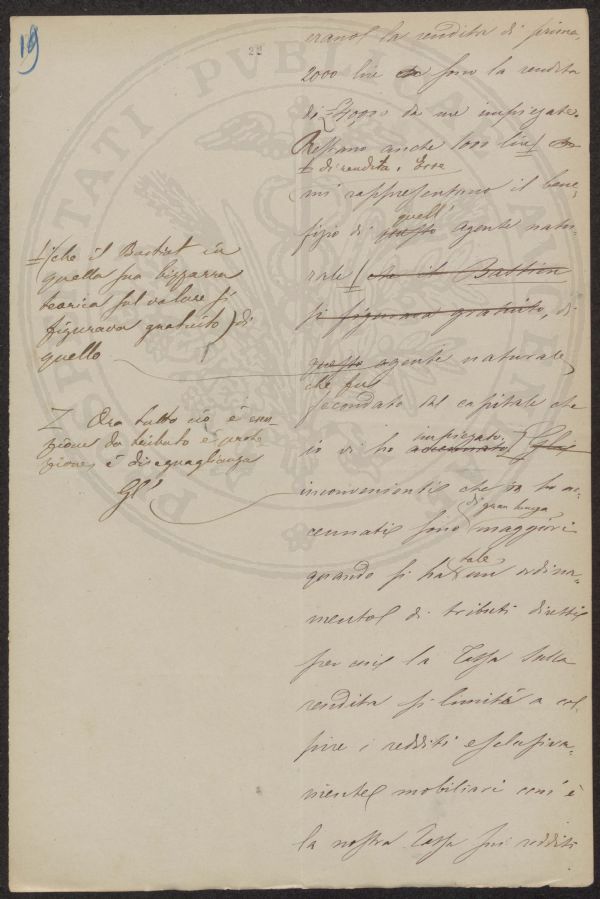 19
22
erano la rendita di prima,
2000 lire sono la rendita
da me impiegate.
Restano anche 1000 lire
di rendita. Esse
mi rappresentano il bene-
fizio di quell' agente natu-
rale (che il Bastien
si figurava gratuito, di
questo agente naturale
che fu
secondato dal capitale che
io vi ho impiegato,
inconvenienti che vi ho ac-
cennati sono di gran lunga maggiori
quando si ha un tale ordina-
mento di tributi diretti
per cui la Tassa sulla
rendita si limita a col-
pire i redditi esclusiva-
mente mobiliari com'è
la nostra Tassa sui redditi
(che il Bastiat in
quella sua bizzarra
teorica sul valore si
figurava gratuito) di
quello
Ora tutto ciò è esen-
zione da tributo è prote-
zione, è diseguaglianza
Gl'